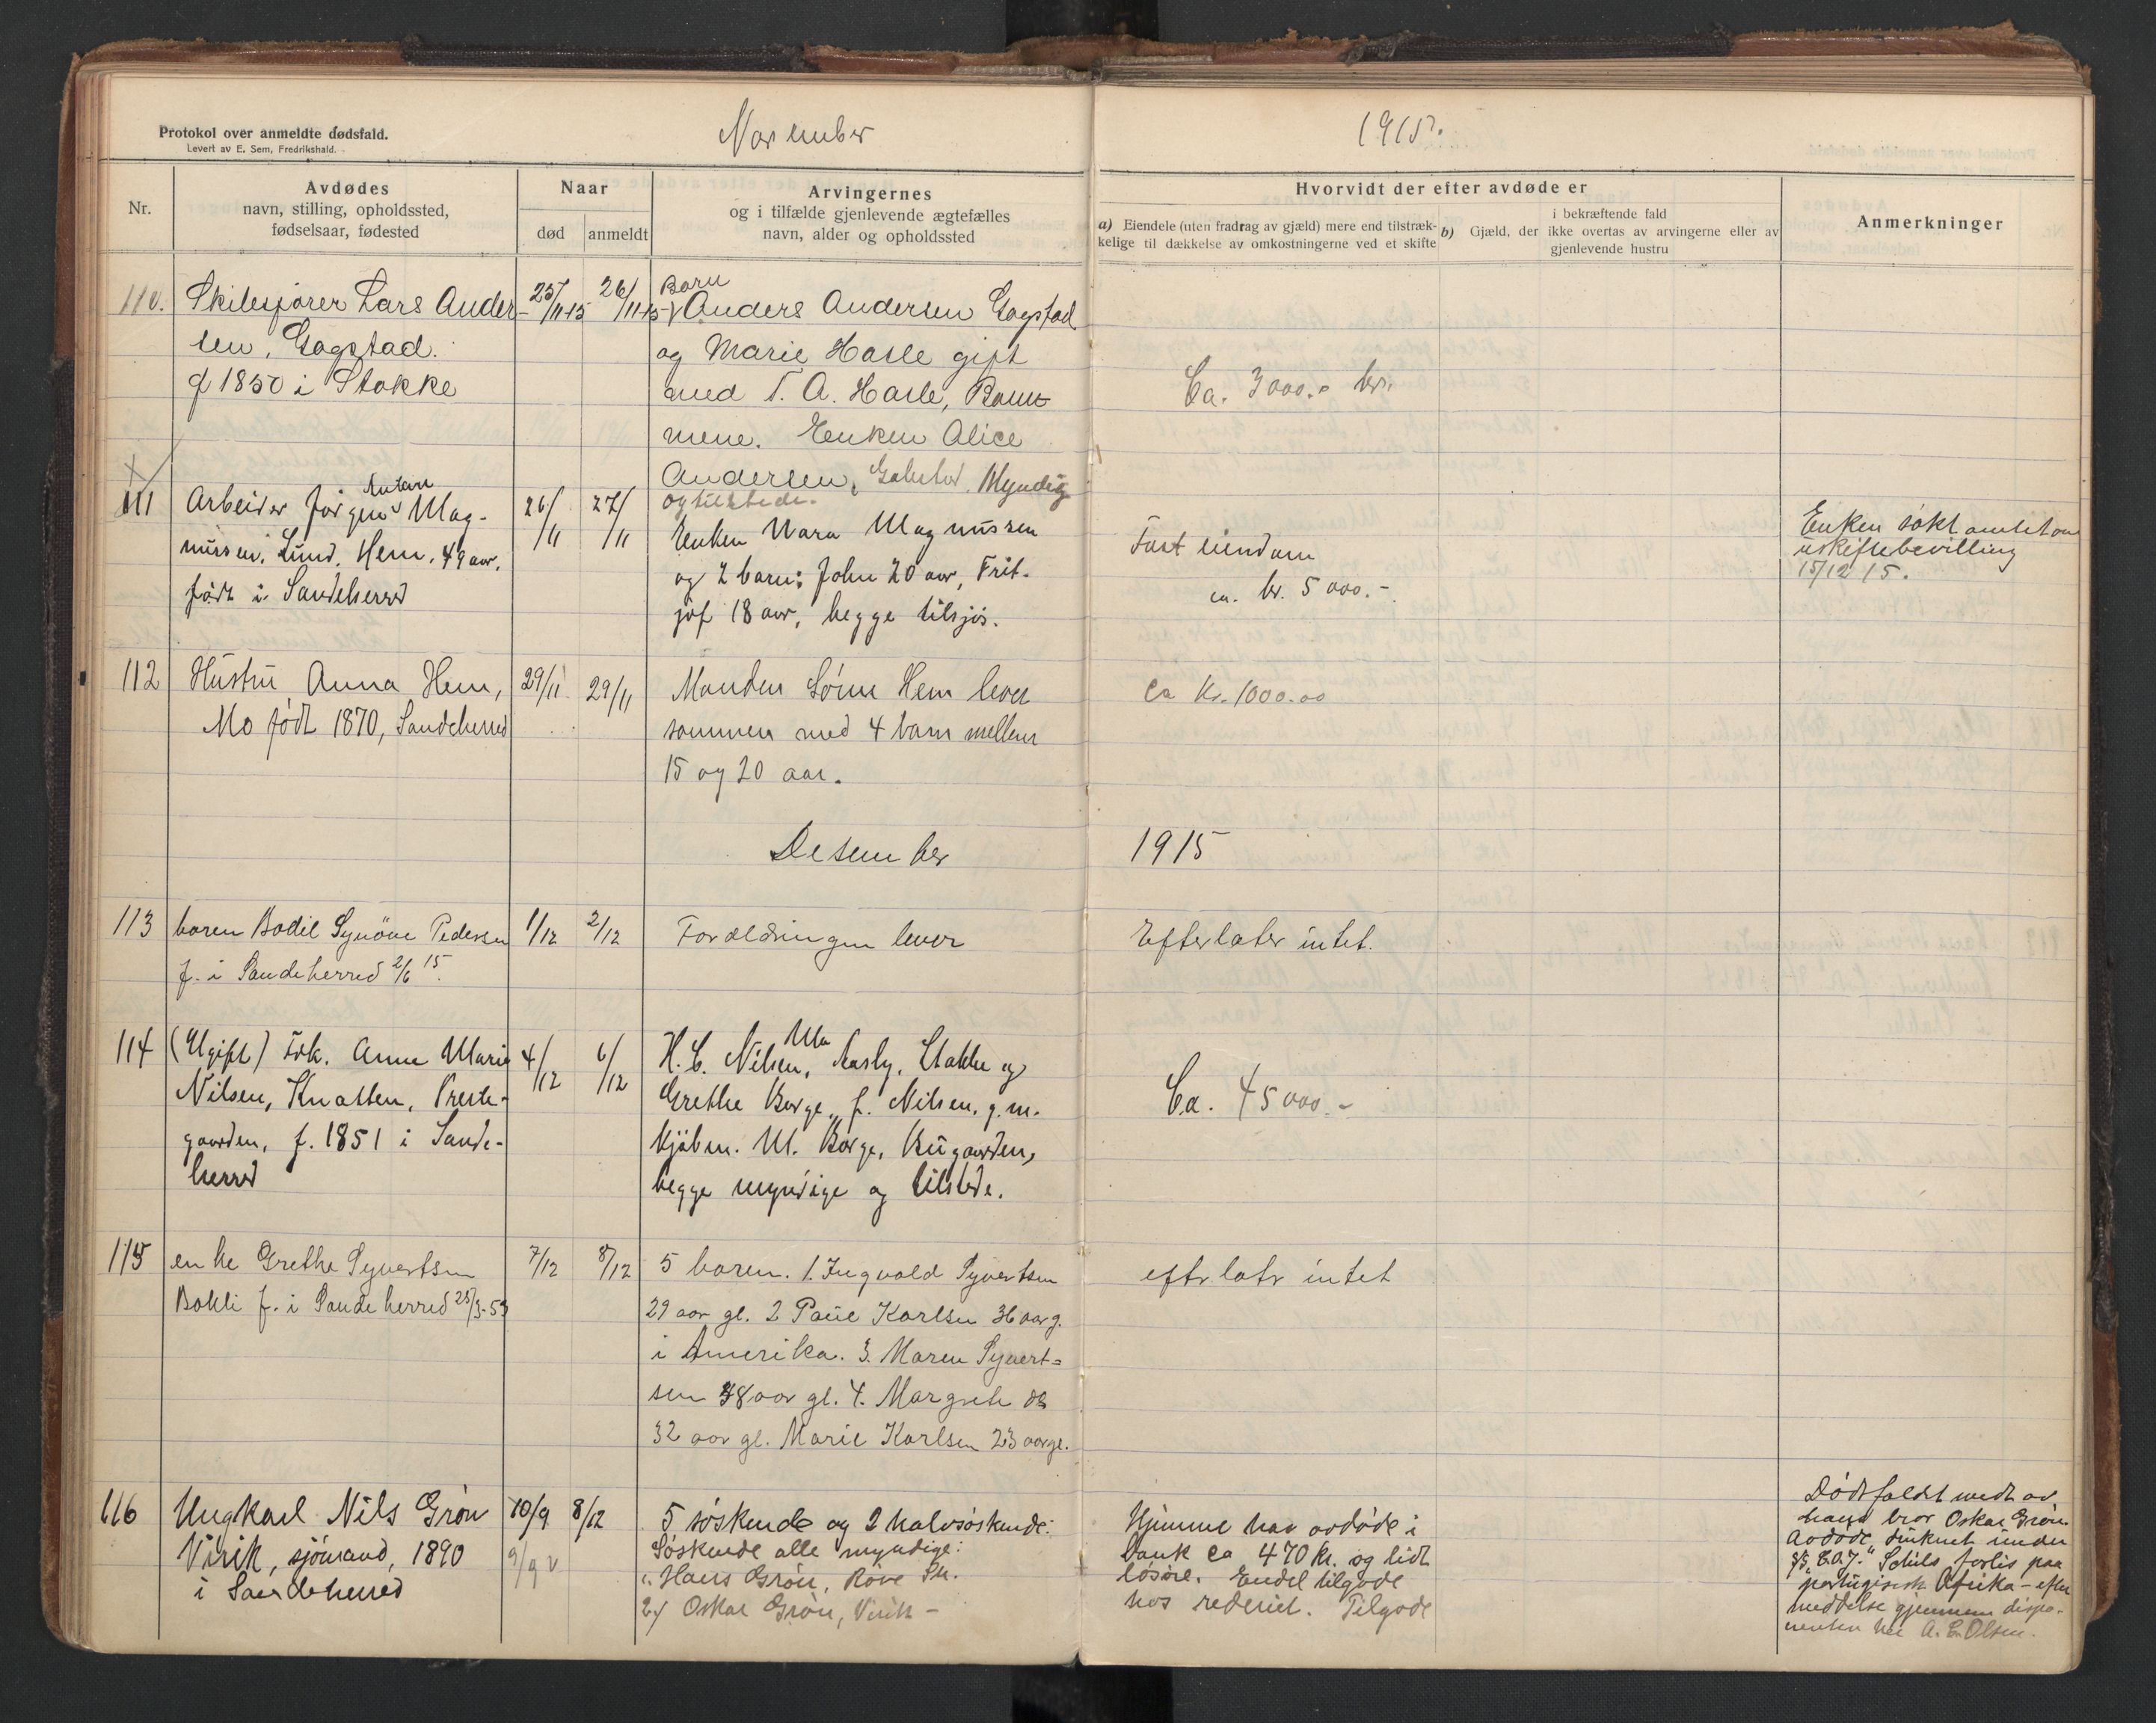 Protokol over anmeldte dødsfald.
Levert av E. Sem, Fredrikshald.
November
1915.
Nr.
Avdødes
navn, stilling, opholdssted,
fødselsaar, fødested
Naar
død
anmeldt
Arvingernes
og i tilfælde gjenlevende ægtefælles
navn, alder og opholdssted
Hvorvidt der efter avdøde er
a) Eiendele (uten fradrag av gjæld) mere end tilstræk-
kelige til dækkelse av omkostningerne ved et skifte
b) Gjæld, der
i bekræftende fald
ikke overtas av arvingerne eller av
gjenlevende hustru
Anmerkninger
110.
Skibsfører Lars Ander-
sen, Gogstad.
f 1850 i Stokke
25/11-15
26/11-15
Barn
Anders Andersen Gogstad
og Marie Hasle gift
med T. A. Hasle, Bom-
mene. Enken Alice
Andersen, Gokstad. Myndig
og tilstede.
Ca. 3000.- kr.
111
Arbeider Jörgen Anton Mag-
nussen, Lund, Hem, 49 aar,
födt i Sandeherred
26/11
27/11
Enken Mara Magnussen
og 2 barn: John 20 aar, Frit-
jof 18 aar, begge tilsjös.
Fast eiendom
ca. kr. 5000.-
Enken søkt amtet om
uskiftebevilling
15/12 15.
112
Hustru Anna Hem,
Mo födt 1870, Sandeherred
29/11
29/11
Manden Sörin Hem lever
sammen med 4 barn mellem
15 og 20 aar.
ca Kr. 1000.00
Desember
1915
113
baren Bodil Synöve Pedersen
f. i Sandeherred 2/6 15.
1/12
2/12
Forældringen lever
Efterlater intet.
114
(Ugift) Frk. Anne Marie
Nilsen, Knatten, Preste-
gaarden, f. 1851 i Sande-
herred
4/12
6/12
H. C. Nilsen, Aasly, Stokke og
Grethe Borge, f. Nilsen, g. m.
kjöbm. M. Borge, Bugaarden,
begge myndige og tilstede.
Ca. 45000.-
115
enke Grethe Syvertsen
Bakli f. i Sandeherred 25/3-53
7/12
8/12
5 baren. 1. Ingvald Syvertsen
29 aar gl. 2 Paul Karlsen 36 aar g.
i Amerika. 3. Maren Syvert=
sen 38 aar gl. 4. Margrete do
32 aar gl. Marie Karlsen 23 aar gl.
efterlater intet
116
Ungkarl Nils Grön
Virik, sjömand, 1890
i Sandeherred
10/9
9/9
8/12
5 søskende og 2 halvsøskende:
Søskende alle myndige:
1. Hans Grön, Rove Sh.
2) Oskar Grön, Virik -
Hjemme har avdøde i
bank ca 470 kr. og lidt
løsøre. Endel tilgode
hos rederiet. Tilgode
Dödsfaldet medt av
hans bror Oskar Grön.
Avdöde druknet under
forlis paa
portugisisk Afrika - efter
meddelse gjennem dispo-
nenten her A. E. Olsen.